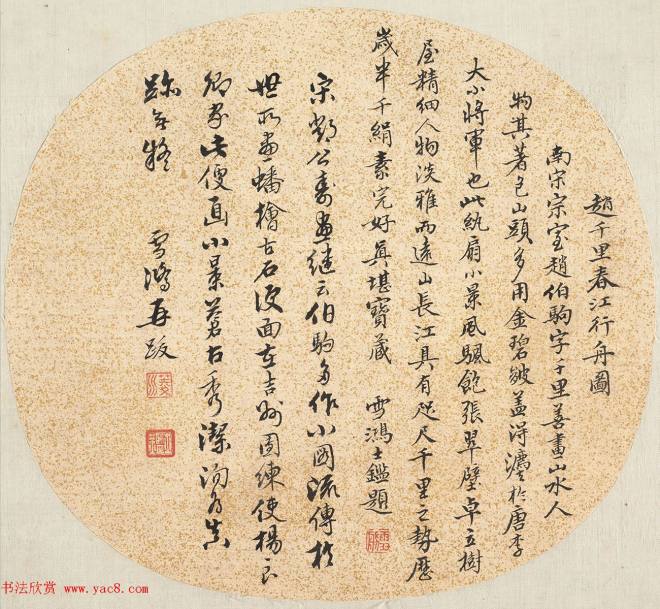 趙千里春江行舟圖
南宋宗室趙伯駒字千里善畫山水人
物其著色山頭多用金碧皴蓋得濫於唐李
大小將軍也此紈扇小景風颿飽張翠壁卓立樹
屋精細人物淡雅而遠山長江具有咫尺千里之勢歷
歲半千絹素完好真堪寶藏 雪鴻士鑑題
宋鄧公壽畫繼云伯駒多作小圖流傳於
世所畫蟠檜古石便面在吉州團練使楊
卿家此便面小景蒼古秀潔洵為真
跡無疑 雪鴻再跋
书法欣赏 www.yac8.com